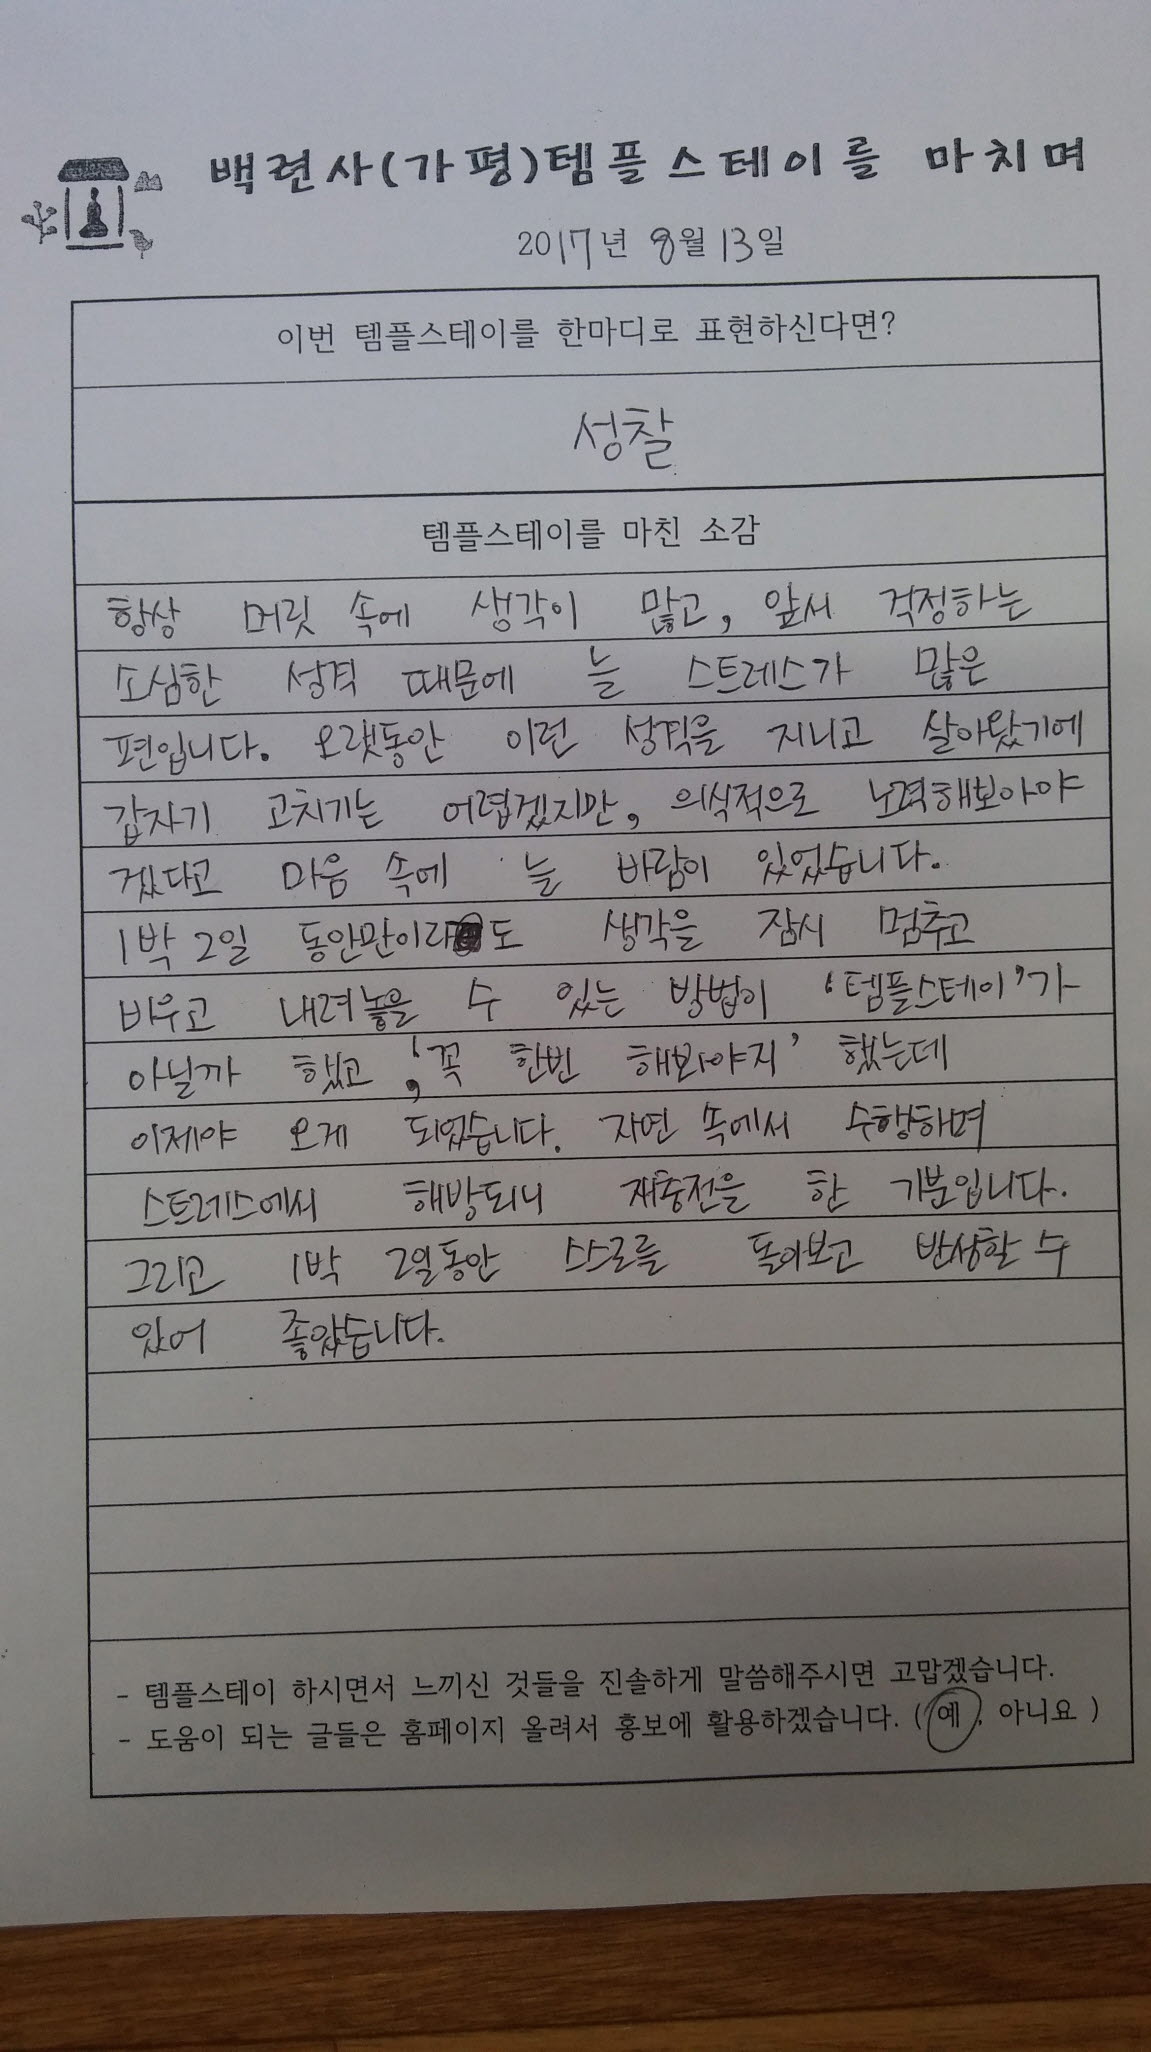 백련사(가평)템플스테이를 마치며
2017년 8월 13일
이번 템플스테이를 한마디로 표현하신다면?
성찰
템플스테이를 마친 소감
항상 머릿 속에 생각이 많고, 앞서 걱정하는
소심한 성격 때문에 늘 스트레스가 많은
편입니다. 오랫동안 이런 성격을 지니고 살아왔기에
갑자기 고치기는 어렵겠지만, 의식적으로 노력해보아야
겠다고 마음 속에 늘 바람이 있었습니다.
1박 2일 동안만이라도 생각을 잠시 멈추고
비우고 내려놓을 수 있는 방법이 '템플스테이'가
아닐까 했고, '꼭 한번 해봐야지' 했는데
이제야 오게 되었습니다. 자연 속에서 수행하며
스트레스에서 해방되니 재충전을 한 기분입니다.
그리고 1박 2일동안 스스로를 돌아보고 반성할 수
있어 좋았습니다.
- 템플스테이 하시면서 느끼신 것들을 진솔하게 말씀해주시면 고맙겠습니다.
- 도움이 되는 글들은 홈페이지 올려서 홍보에 활용하겠습니다. ( 예 , 아니요 )